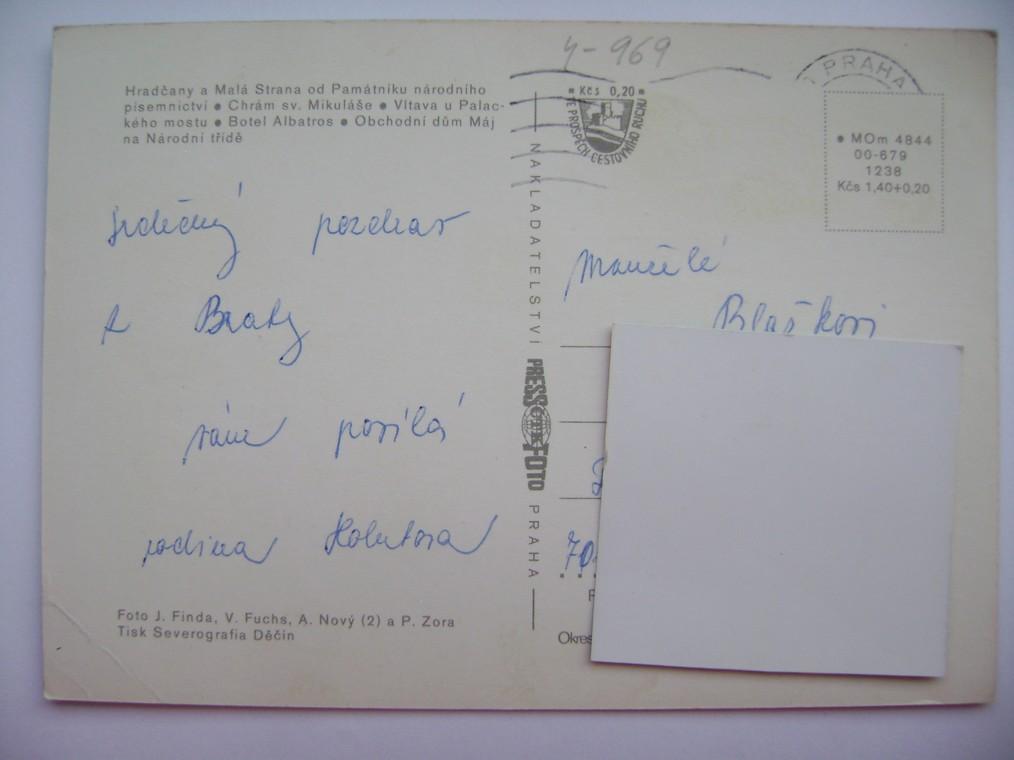 Hradčany a Malá Strana od Památníku národního
písemnictví • Chrám sv. Mikuláše • Vltava u Palac-
kého mostu • Botel Albatros • Obchodní dům Máj
na Národní třídě
Srdečný pozdrav
z Prahy
vám posílá
rodina
Foto J. Finda, V. Fuchs, A. Nový (2) a P. Zora
Tisk Severografia Děčín
NAKLADATELSTVÍ
PRESSFOTO
PRAHA
4-969
Kčs 0,20
VE PROSPĚCH CESTOVNÍHO RUCHU
1 PRAHA
• MOm 4844
00-679
1238
Kčs 1,40+0,20
Manželé
Blaškovi
70
Okres